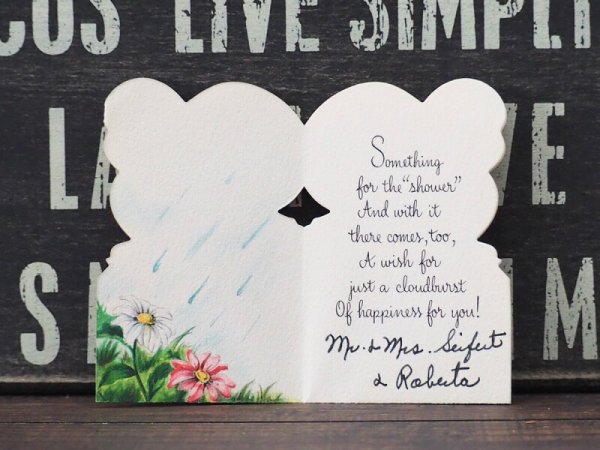 CUS LIVE SIMPLI
LA VE
E
S M
Something
for the "shower"
And with it
there comes, too,
A wish for
just a cloudburst
Of happiness for you!
Mr. & Mrs. Seifert
& Roberta